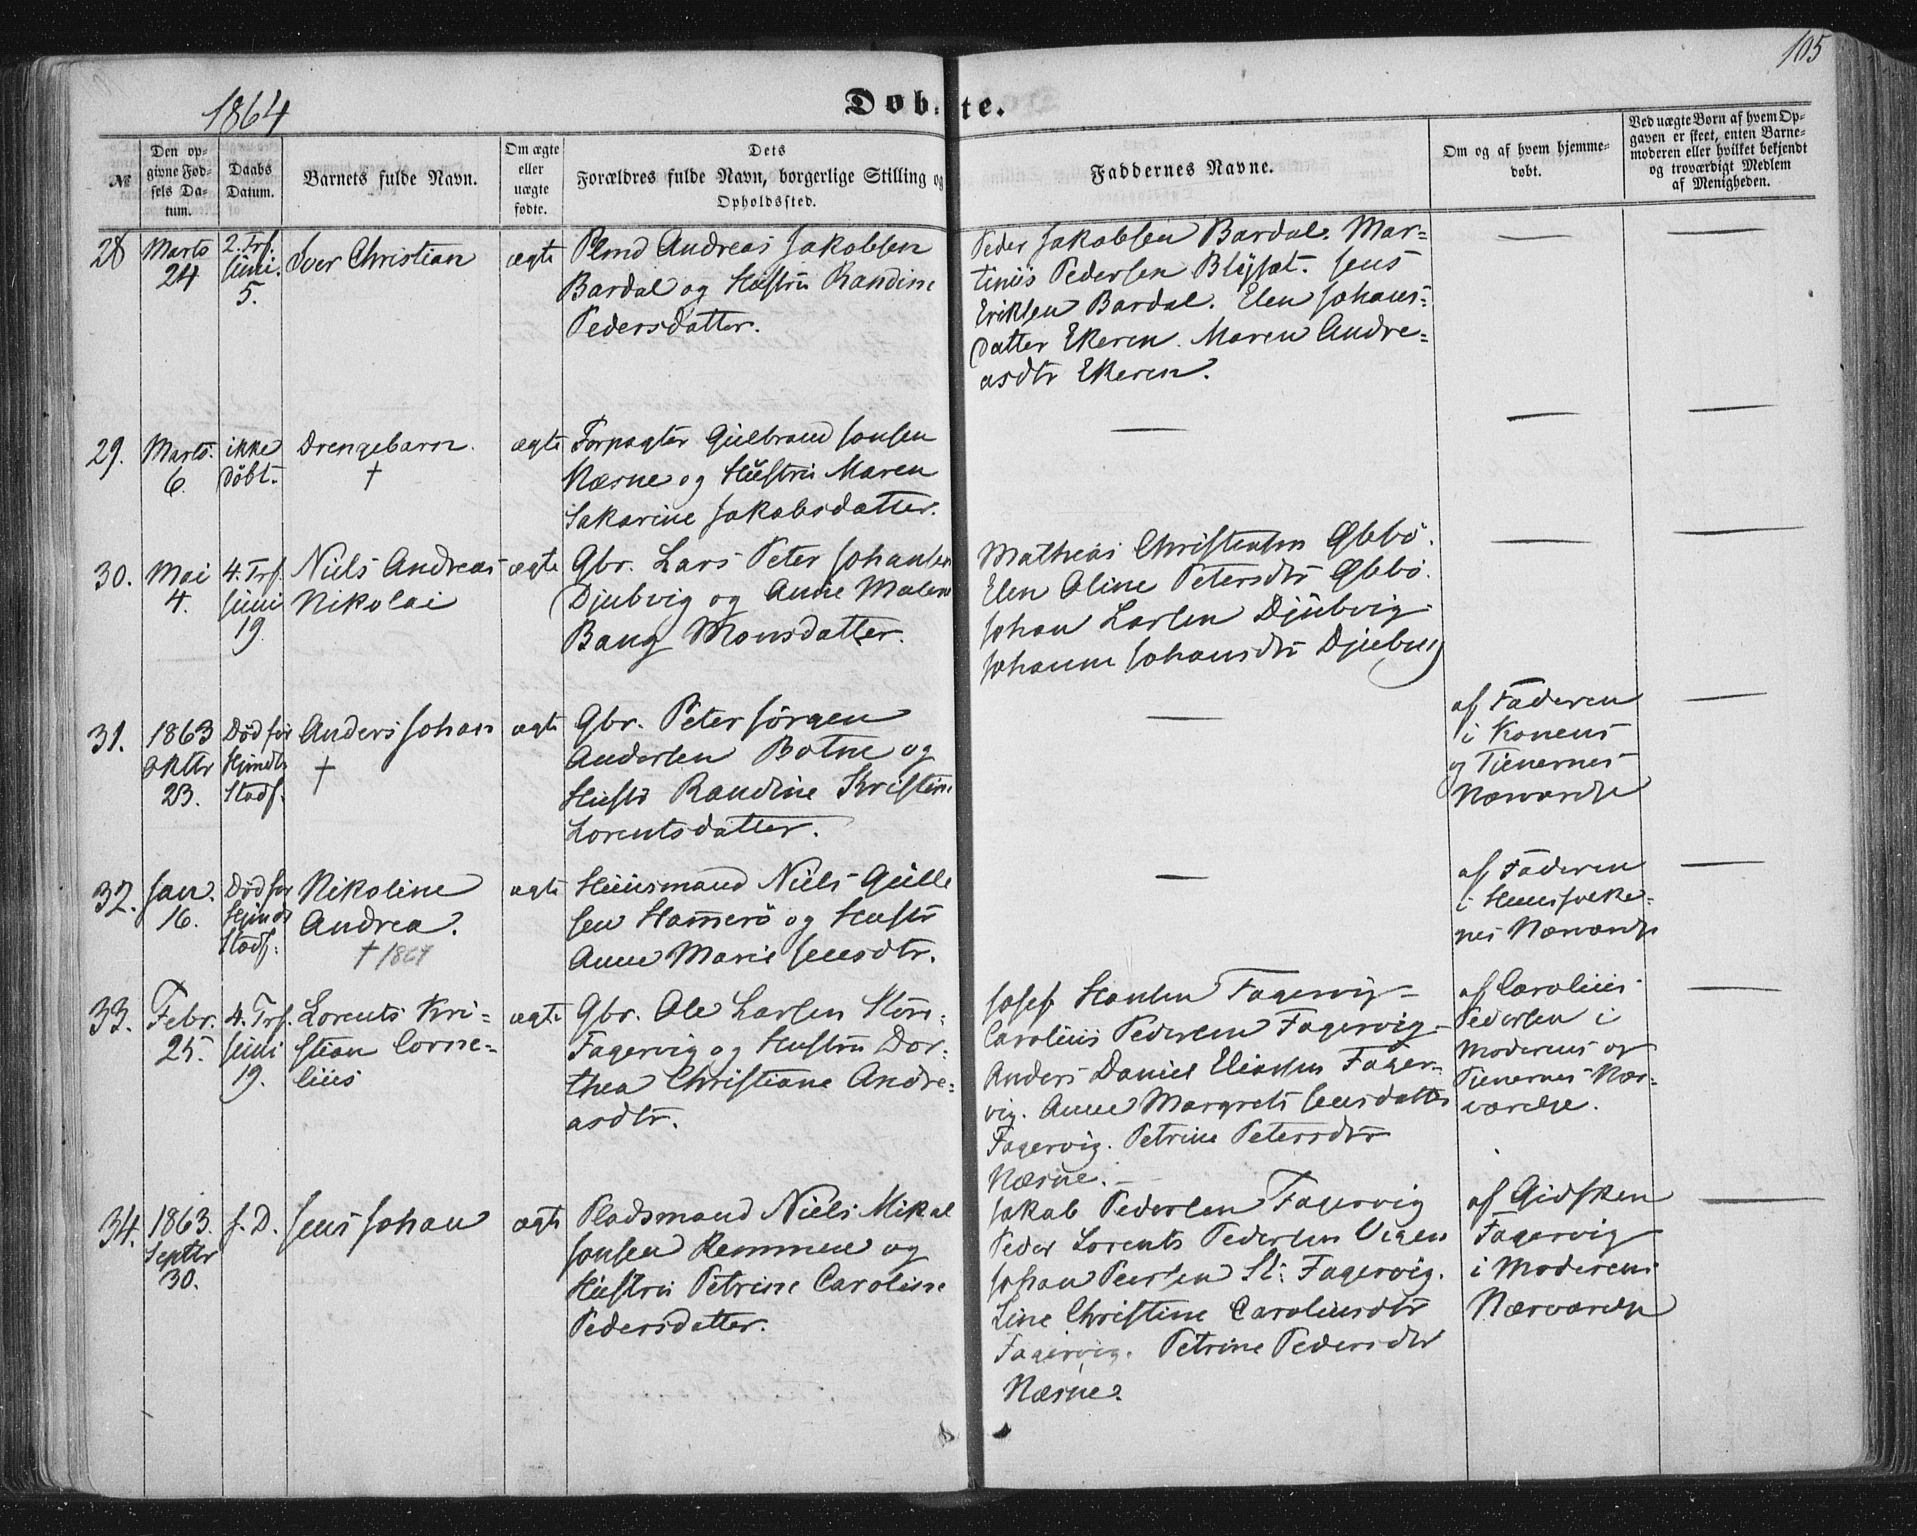 105
1864
Døbte.
№
Den op-
givne Fød-
sels Da-
tum.
Daabs
Datum.
Barnets fulde Navn.
Om ægte
eller
uægte
fødte.
Dets
Forældres fulde Navn, borgerlige Stilling og
Opholdssted.
Faddernes Navne.
Om og af hvem hjemme-
døbt.
Ved uægte Born af hvem Op-
gaven er skeet, enten Barne-
moderen eller hvilket bekjendt
og troværdigt Medlem
af Menigheden.
28
Marts
24
2. Trf.
Juni.
5.
Iver Christian
ægte
Plmd Andreas Jakobsen
Bardal og Hustru Randine
Pedersdatter.
Peder Jakobsen Bardal. Mar=
tinus Pedersen Blysæt. Jens
Eriksen Bardal. Elen Johans=
datter Ekeren. Maren Andre=
asdtr Ekeren.
29.
Marts.
6.
ikke
døbt.
Drengebarn.
†
ægte
Forpagter Gulbrand Jonsen
Næsne og Hustru Maren
Sakarine Jakobsdatter.
30.
Mai
4.
4. Trf.
Juni
19.
Niels Andreas
Nikolai
ægte
Gbr. Lars Peter Johansen
Djubvig og Anne Malene
Bang Monsdatter.
Mathias Christensen
Elen Oline Petersdtr
Johan Larsen Djubvig
Johanne Johansdtr Djubvig
31.
1863
Oktbr
23.
Død før
Hjmdb
Stadf.
Anders Johan
†
ægte
Gbr. Peter Jørgen
Andersen Botne og
Hustr Randine Kristine
Lorentsdatter.
af Faderen
i Konens
og Tjenernes
Nærværelse
32.
Jan.
16.
Død før
Hjmdb
Stadf.
Nikoline
Andrea.
† 1864
ægte
Huusmand Niels Gulle
sen Hamerø og Hustr
Anne Marie Jensdtr.
af Faderen
i Huusfolke=
nes Nærværelse
33.
Febr.
25.
4. Trf.
Juni
19.
Lorents Kri=
stian Corne=
lius
ægte
Gbr. Ole Larsen
Fagervig og Hustru Dor=
thea Christiane Andre=
asdtr.
Josef Hansen Fagervig
Carolius Pedersen Fagervig
Anders Daniel Eliassen Fager=
vig. Anne Margrete Jensdatter
Fagervig. Petrine Petersdtr
Næsne.
af Carolius
Pedersen i
Moderens og
Tjenernes Nær=
værelse.
34.
1863.
Septbr
30.
f. D.
Jens Johan
ægte
Pladsmand Niels Mikal
Jonsen Remmene og
Hustru Petrine Caroline
Pedersdatter.
Jakob Pedersen Fagervig
Peder Lorents Pedersen
Johan Peersen St: Fagervig.
Line Christine Caroliusdtr
Fagervig. Petrine Pedersdtr
Næsne.
af Gidsken
Fagervig
i Moderens
Nærværelse